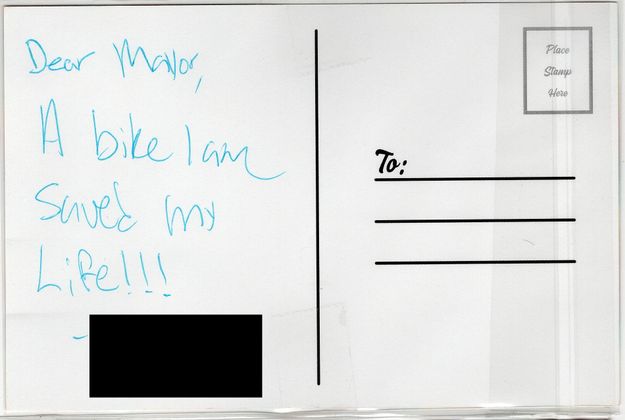 Dear Mayor,
A bike lane
Saved my
Life!!!
-
Place
Stamp
Here
To: